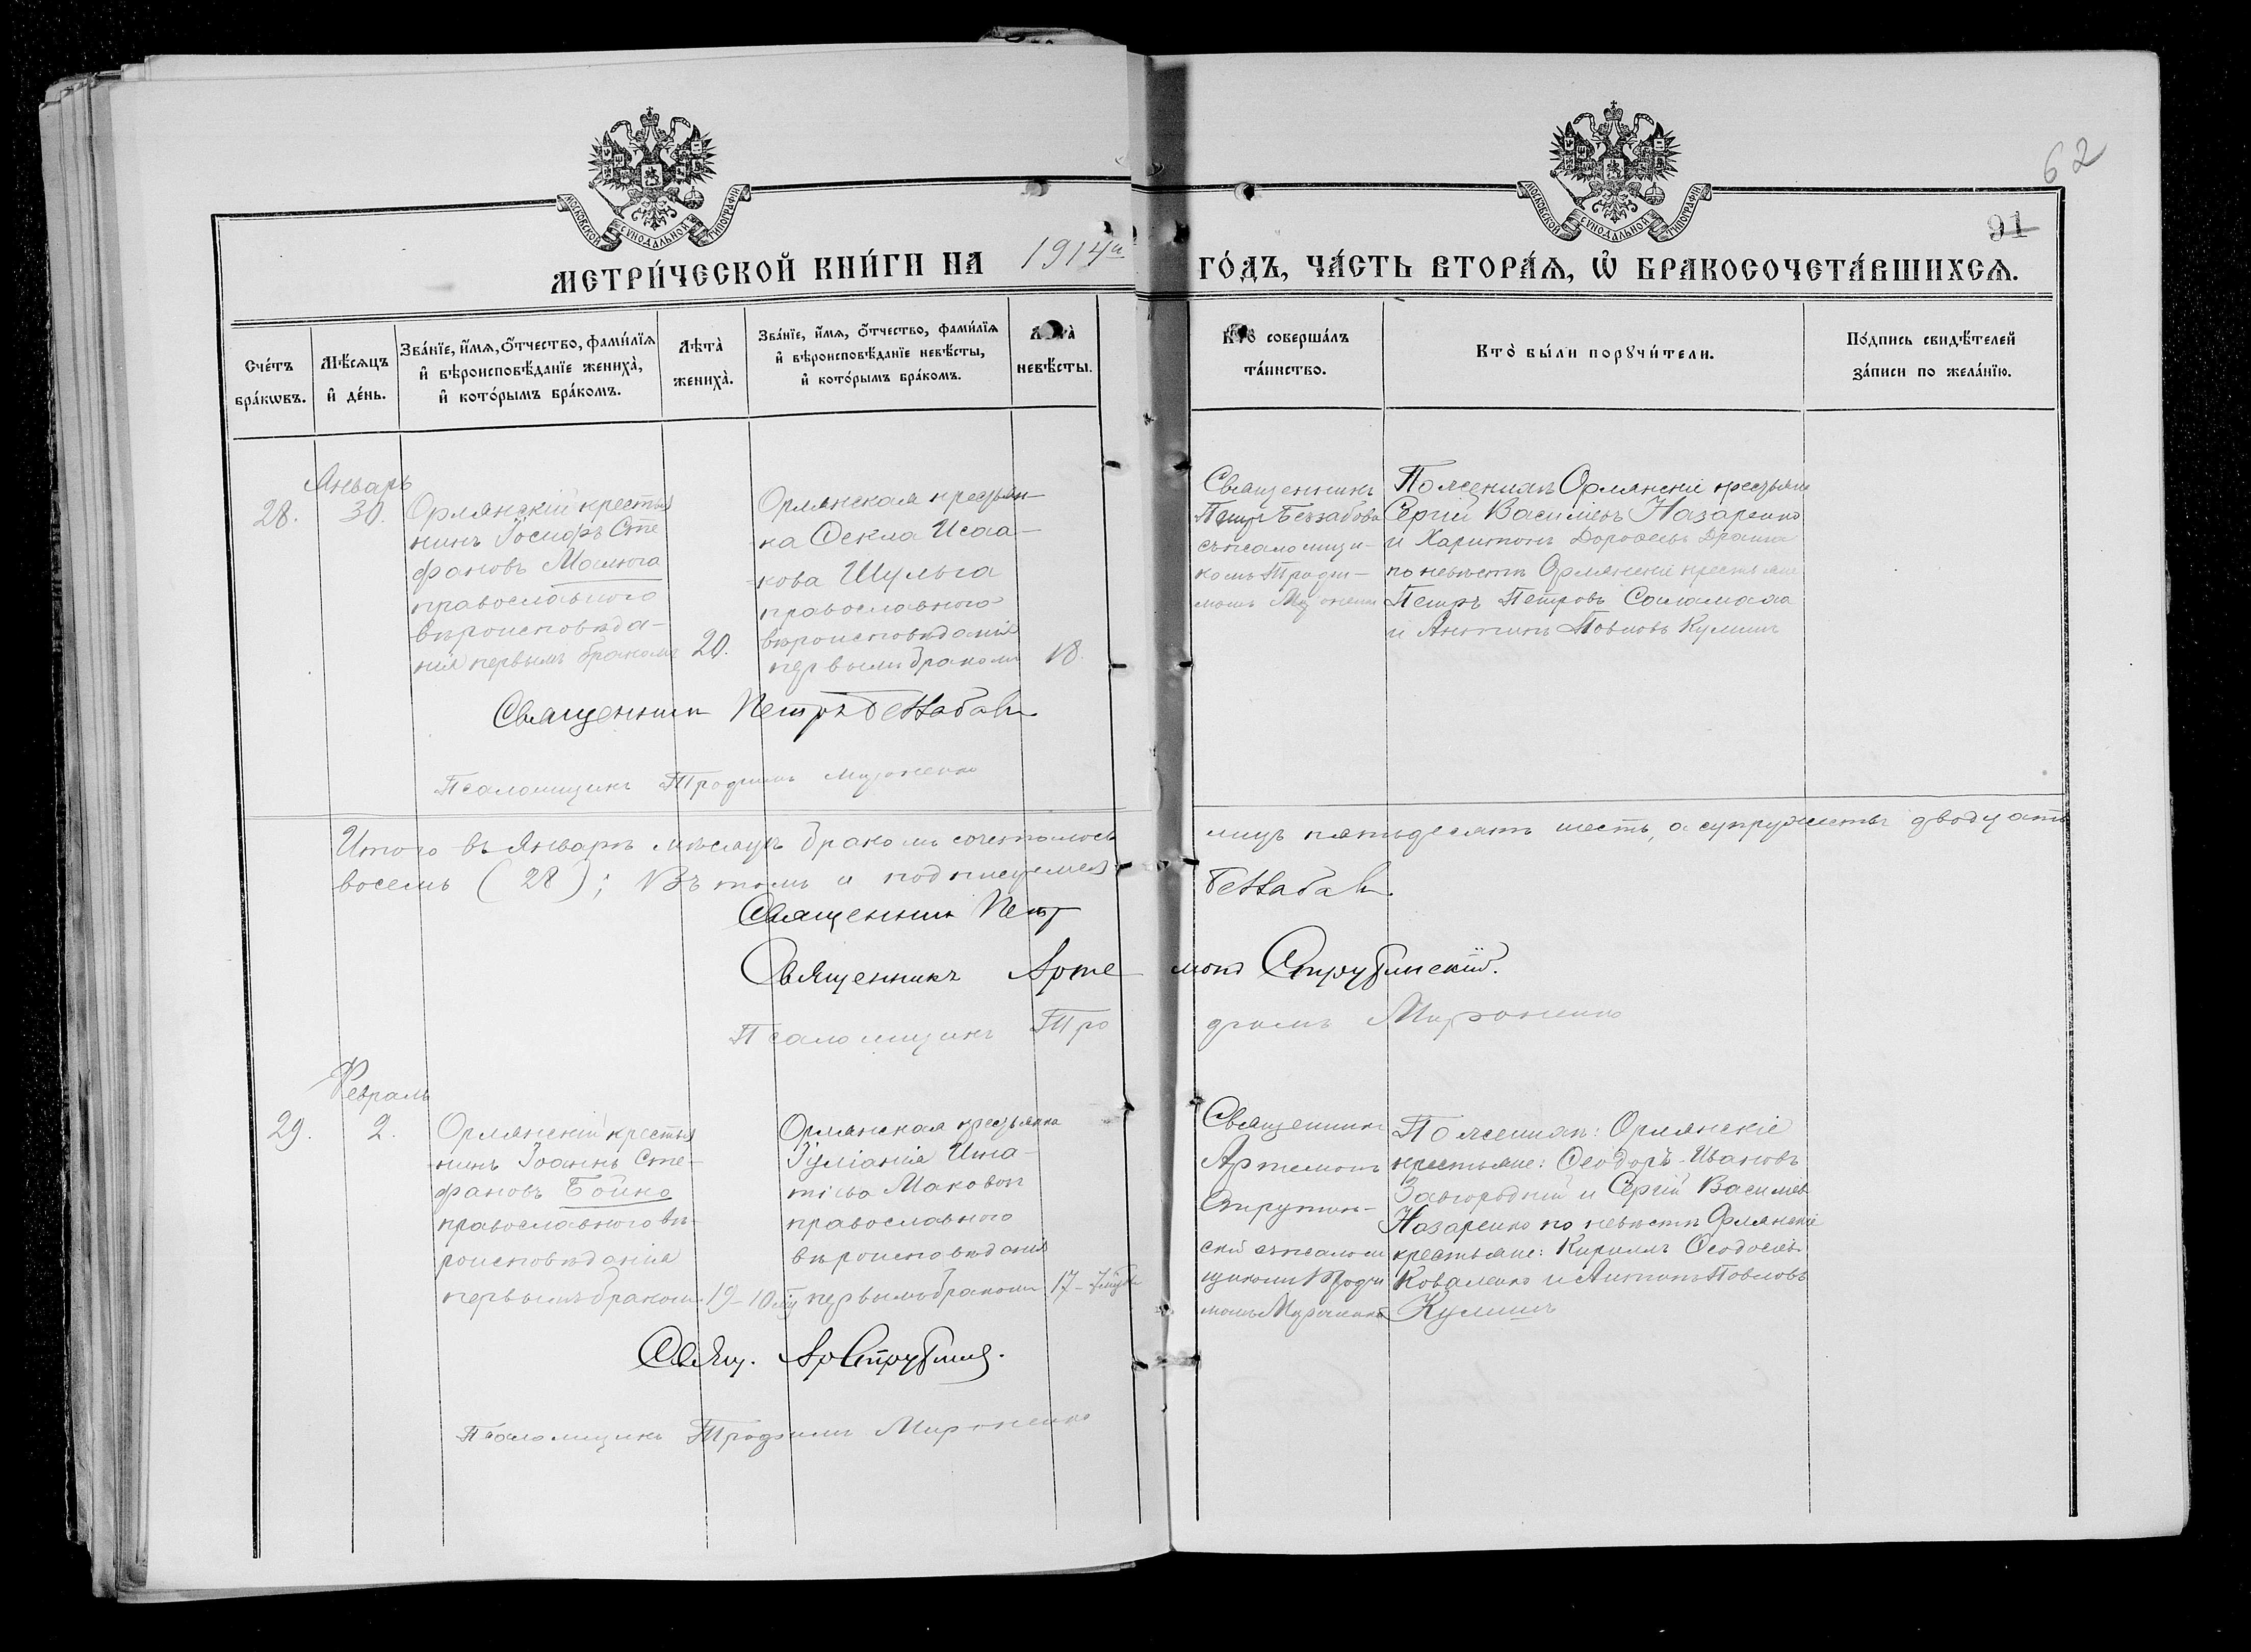 62
91
МОСКОВСКОЙ СѴНОДАЛЬНОЙ ТИПОГРАФІИ
МОСКОВСКОЙ СѴНОДАЛЬНОЙ ТИПОГРАФІИ
МЕТРИ́ЧЕСКОЙ КНИ́ГИ НА 1914й ГО́ДЪ, ЧА́СТЬ ВТОРА́Ѧ, Ѡ҆ БРАКОСОЧЕТА́ВШИХСѦ.
Сче́тъ
бра́кѡвъ.
Мѣ́сѧцъ
и҆ де́нь.
Зва́нїе, и҆́мѧ, ѻ҆́тчество, фами́лїѧ
и҆ вѣроисповѣ́данїе жениха̀,
и҆ кото́рымъ бра́комъ.
Лѣта̀
жениха̀.
Зва́нїе, и҆́мѧ, ѻ҆́тчество, фами́лїѧ
и҆ вѣроисповѣ́данїе невѣ́сты,
и҆ кото́рымъ бра́комъ.
Лѣта̀
невѣ́сты.
Кто̀ соверша́лъ
та́инство.
Кто̀ бы́ли порꙋчи́тели.
По́дпись свидѣ́телей
за́писи по жела́нїю.
28.
Январь
30.
Орлянскій крестья
нинъ Іосифъ Сте
фановъ Малюга
православнаго
вѣроисповѣда-
нія первымъ бракомъ
20.
Орлянская крестьян-
ка Ѳекла Исаа-
кова Шульга
православнаго
вѣроисповѣданія
первымъ бракомъ
18.
Священникъ
Петръ Беззабава
съ псаломщи-
комъ Трофи-
момъ Мироненко
По женихѣ Орлянскіе крестьяне
Сергій Васильевъ Назаренко
и Харитонъ Дороѳеевъ
по невѣстѣ Орлянскіе крестьяне
Петръ Петровъ Саламаха
и Антипъ Павловъ Кулишъ
Священникъ Петръ Беззабава
Псаломщикъ Трофимъ Мироненко
Итого въ Январѣ мѣсяцѣ бракомъ сочеталось лицъ пятьдесятъ шесть, а супружествъ двадцать
восемь (28); Въ томъ и подписуемся:
Священникъ Петръ Беззабава.
Священникъ Артемонъ Струтинскій.
Псаломщикъ Трофимъ Мироненко
29.
Февраль
2.
Орлянскій крестья
нинъ Іоаннъ Сте-
фановъ Бойко
православнаго вѣ-
роисповѣданія
первымъ бракомъ.
19-10
Орлянская крестьянка
Іуліанія Игна-
тіева Маковоз
православнаго
вѣроисповѣданія
первымъ бракомъ
17-
Священникъ
Артемонъ
Струтин-
скій съ псалом
щикомъ Трофи
момъ Мироненко
По женихѣ: Орлянскіе
крестьяне: Ѳеодоръ Ивановъ
Завгородній и Сергій Васильев
Назаренко по невѣстѣ Орлянскіе
крестьяне: Кириллъ Ѳеодосіев
Коваленко и Антипъ Павловъ
Кулишъ
Свящ. Ар Струтинскій.
Псаломщикъ Трофимъ Мироненко